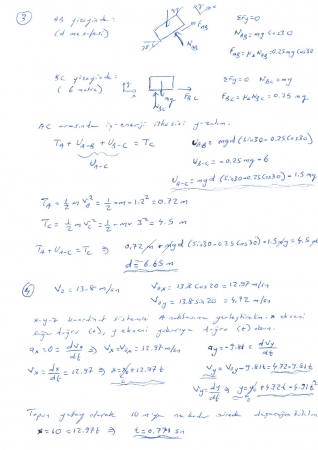 ③ AB yüzeyinde:
(d mesafesi)
ΣFy=0
N_AB = mg cos30
F_AB = μ_k N_AB = 0.25 mg cos30
BC yüzeyinde:
(6 metre)
ΣFy=0 N_BC = mg
F_BC = μ_k N_BC = 0.25 mg
AC arasında iş-enerji ilkesini yazalım.
T_A + U_A-B + U_B-C = T_C
U_A-C
U_AB = mgd (sin30 - 0.25cos30)
U_B-C = -0.25 mg · 6
U_A-C = mgd (sin30 - 0.25cos30) - 1.5 mg
T_A = 1/2 m v_A² = 1/2 · m · 1.2² = 0.72 m
T_C = 1/2 m v_C² = 1/2 · m · 3² = 4.5 m
T_A + U_A-C = T_C ⇒ 0.72 m + mgd (sin30 - 0.25cos30) - 1.5 mg = 4.5 m
d = 6.65 m
V_0 = 13.8 m/sn
V_0x = 13.8 cos20 = 12.97 m/sn
V_0y = 13.8 sin20 = 4.72 m/sn
x-y-z koordinat sistemini A noktasına yerleştirelim. x ekseni
sağa doğru (+), y ekseni yukarıya doğru (+) olsun.
a_x = 0 = dv_x/dt ⇒ V_x = V_0x = 12.97 m/sn
a_y = -9.81 = dv_y/dt
V_x = dx/dt = 12.97 ⇒ x = x_0 + 12.97 t
V_y = V_0y - 9.81t = 4.72 - 9.81t
V_y = dy/dt ⇒ y = y_0 + 4.72t - 4.91t²
Topun yatay olarak 10 m'ye ne kadar sürede
x = 10 = 12.97 t ⇒ t = 0.771 sn